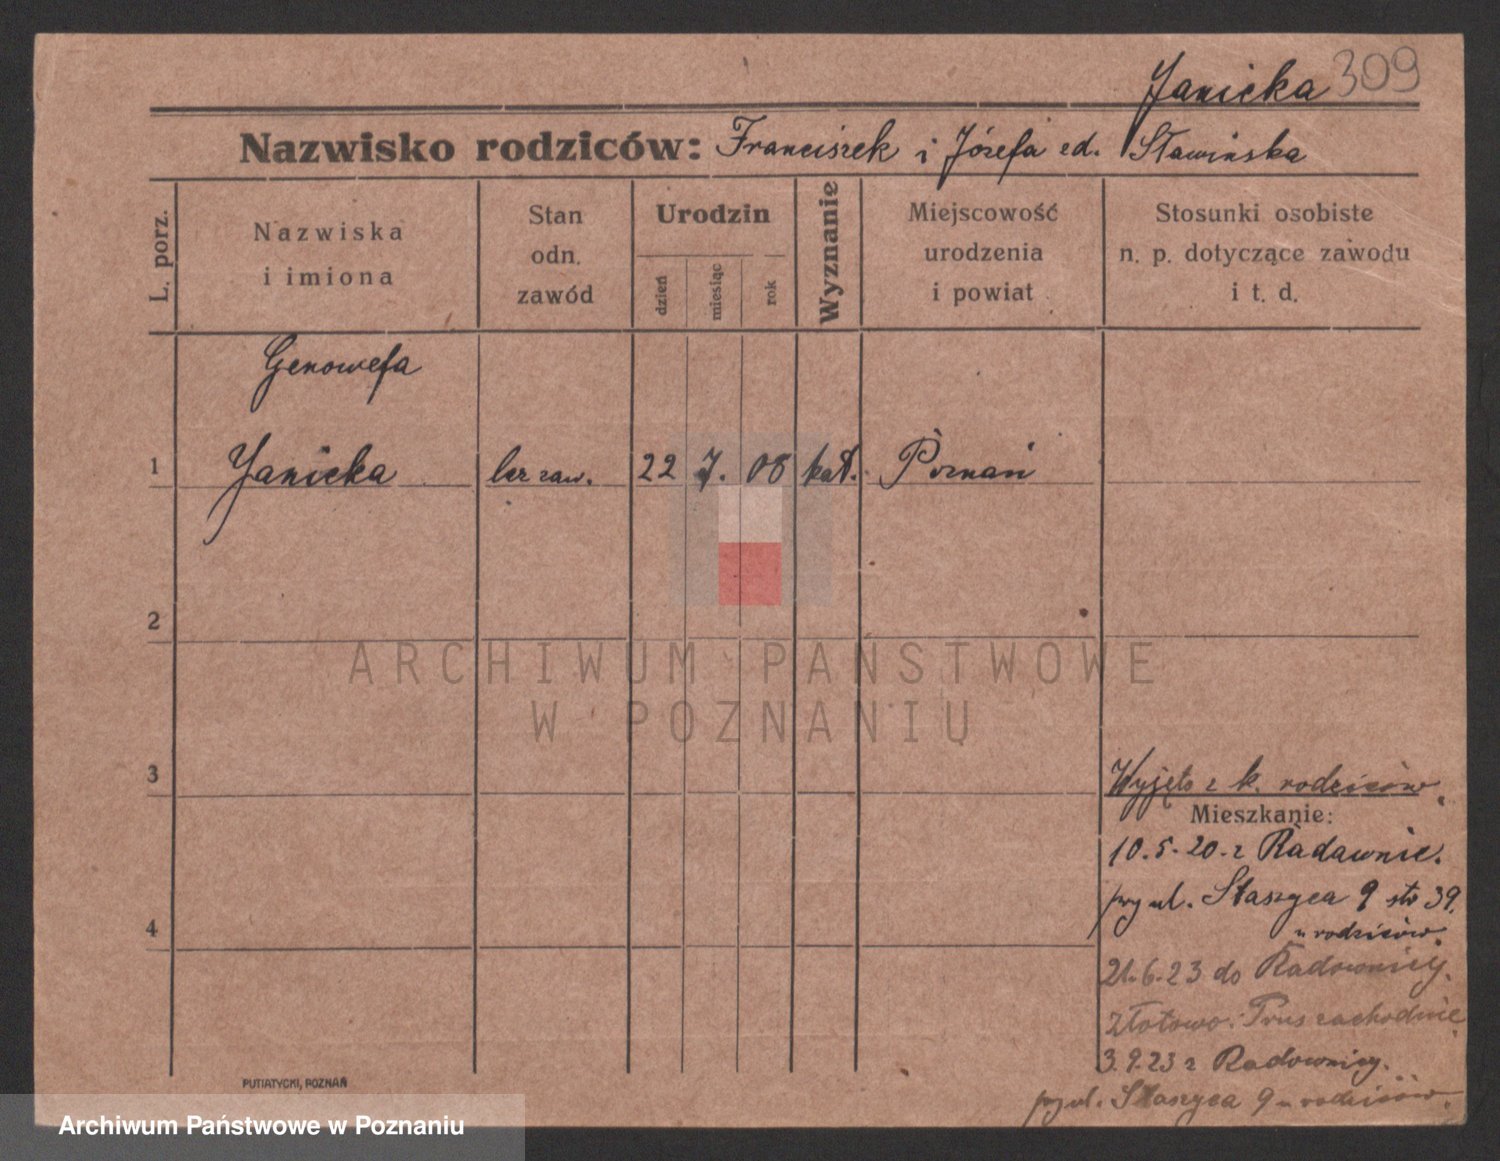 Janicka 309
Nazwisko rodziców: Franciszek i Józefa ed. Sławińska
L. porz.
Nazwiska
i imiona
Stan
odn.
zawód
Urodzin
dzień
miesiąc
rok
Wyznanie
Miejscowość
urodzenia
i powiat
Stosunki osobiste
n. p. dotyczące zawodu
i t. d.
Genowefa
1 Janicka bez zaw. 22 7. 08 kat. Poznań
2
ARCHIWUM PAŃSTWOWE
W POZNANIU
3
Wyjęto z k. rodziców.
Mieszkanie:
10.5.20 z Radawnic.
przy ul. Staszyca 9 stó 39.
4
u rodziców.
21.6.23 do Radownicy.
Złotowo. Prus zachodnie.
3.9.23 z Radownicy.
przy ul. Staszyca 9 u rodziców.
PUTIATYCKI, POZNAŃ
Archiwum Państwowe w Poznaniu